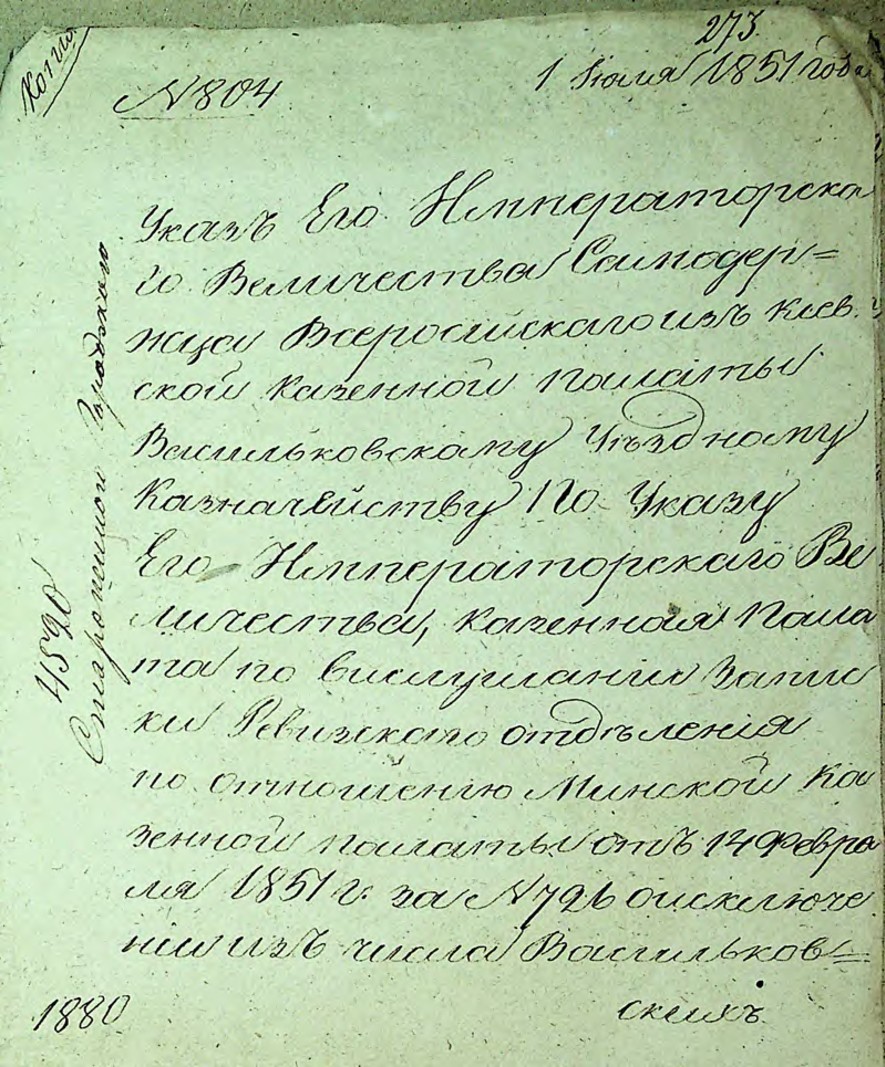 Копія
273.
N 804
1 Іюля 1851 года
Указъ Его Императорска
го Величества Самодер=
жца Всеросійскаго изъ Кіев
ской Казенной Палаты
Васильковскому Уѣздному
Казначейству По Указу
Его Императорскаго Ве
личества, Казенная Пала
та по выслушаніи Запис
ки Ревизскаго отдѣленія
по отношенію Минской Ка
зенной палаты отъ 14 Февра
ля 1851 г. за N 726 о исключе
ніи изъ числа Васильков=
скихъ
1880
4520